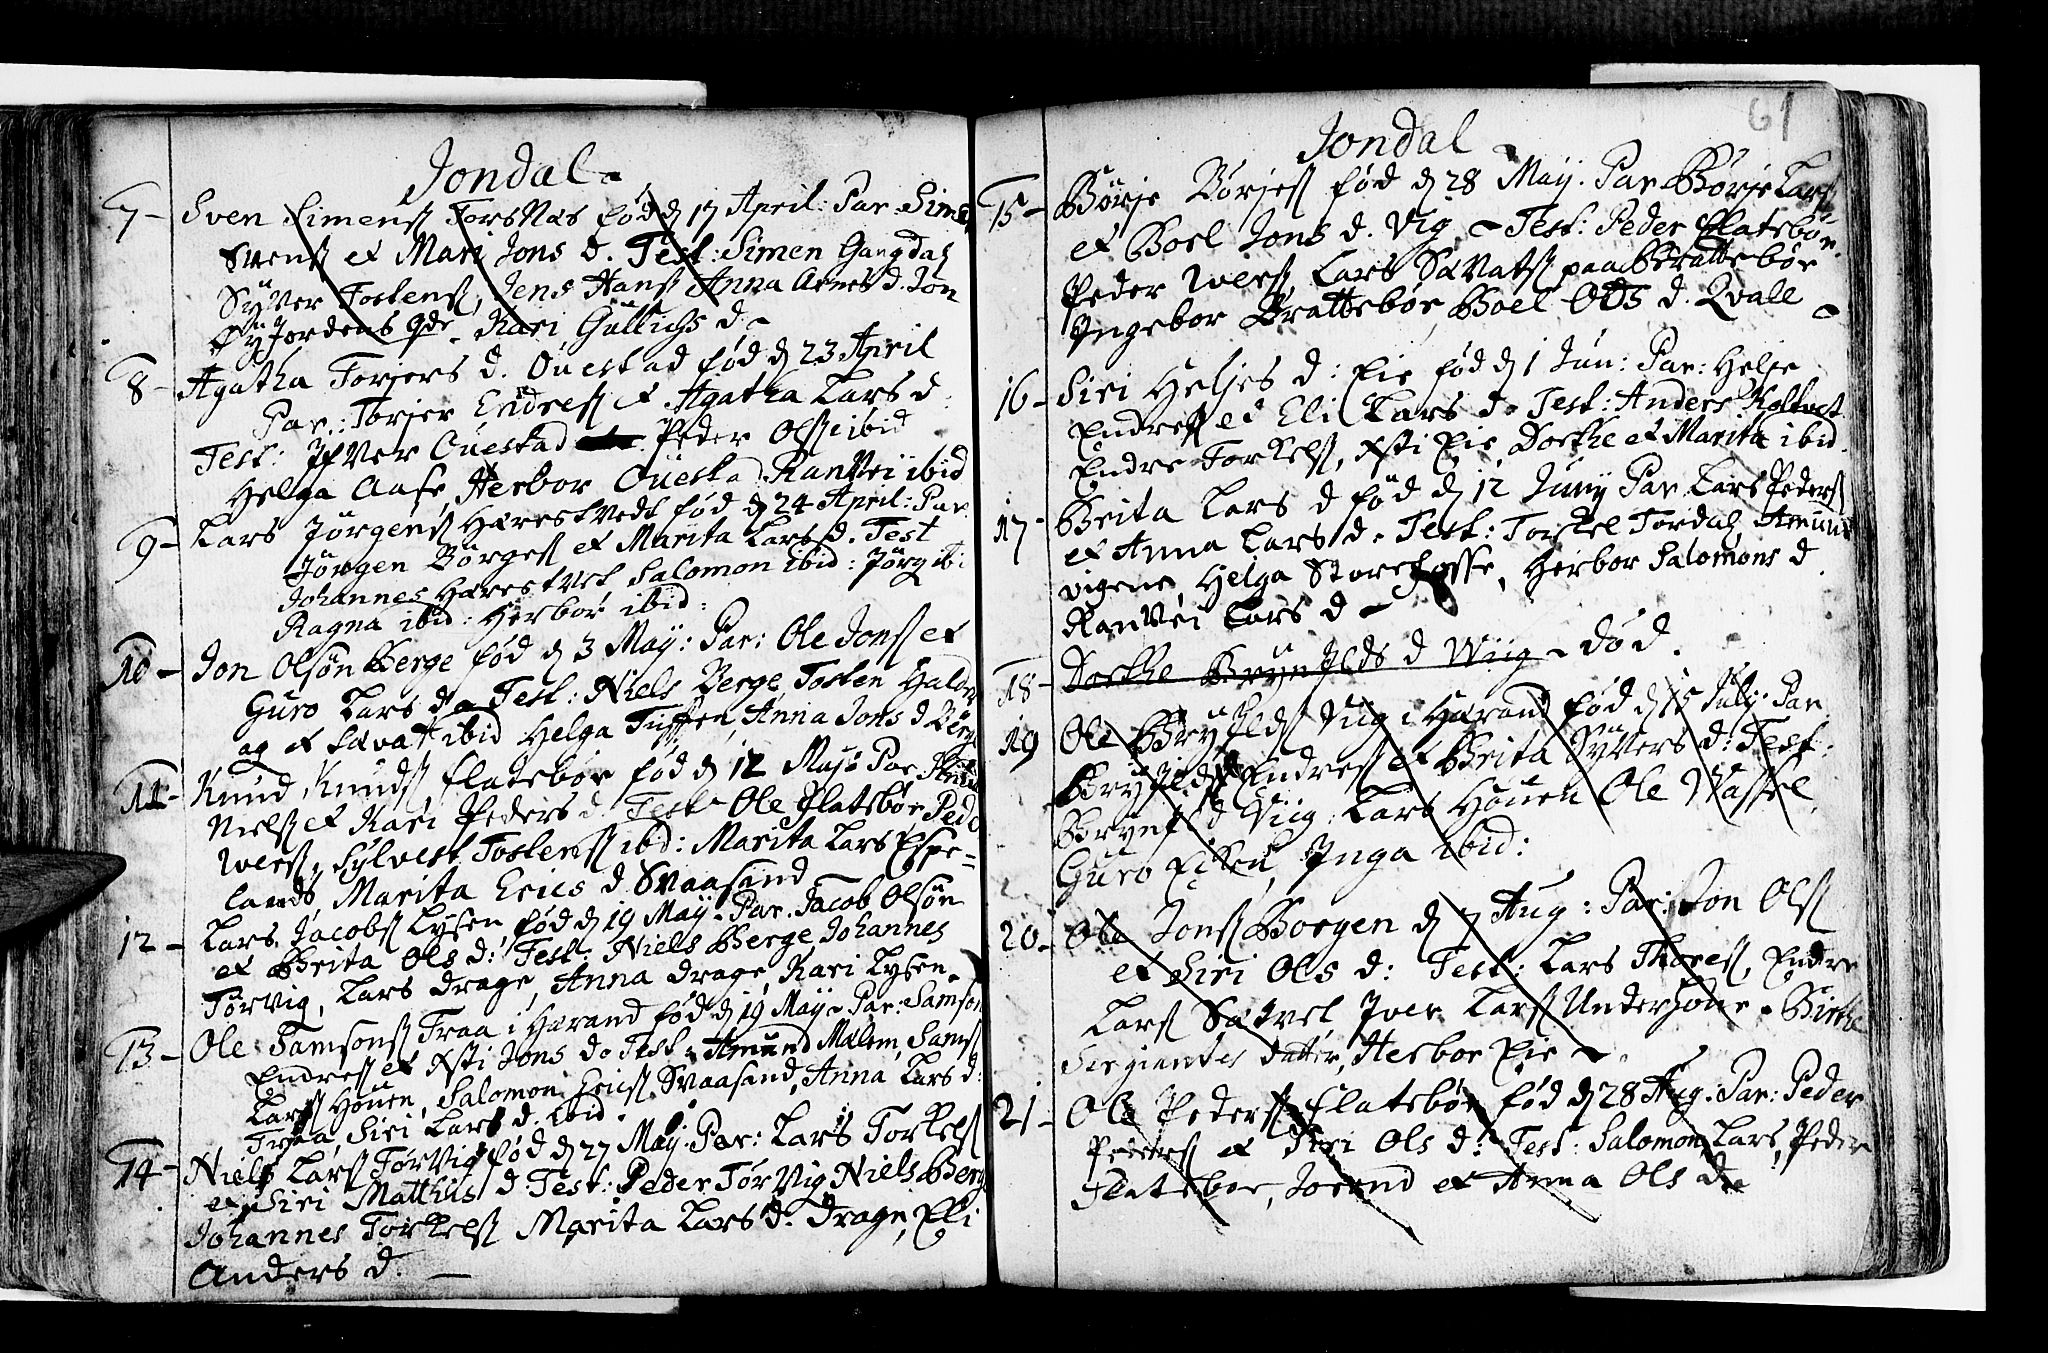 Jondal
7 - Sven Simens Torsnæs fød d 17 April: Par: Sime
Svens et Mari Jons d. Test: Simen Gangdal
Syver Tostens, Jens Hans Anna Arnes d. Jon
Kari Gullichs d -
8 - Agatha Torjers d. Ouestad fød d 23 April
Par.: Torjer Endres et Agatha Lars d:
Test: Ifver Ouestad Peder Ols ibid
Helga Aase, Herbor Ouesta, Ranvei ibid
9 - Lars Jørgens Hærestvedt fød d 24 April: Par.
Jørgen Børges et Marita Lars d. Test
Johannes Hærestvet Salomon ibid: Jørg ibi
Ragna ibid: Herbor ibid:
10 - Jon Olsøn Berge fød d 3 May: Par: Ole Jons et
Guro Lars d - Test: Niels Berge, Tosten Hald
ag et Savat ibid Helga Anna Jons d Berge
11 - Knud Knuds Flatebør fød d 12 Maji Par Knud
Niels et Kari Peders d. Test - Ole Flatebør Ped
Wers, Sylvest Tostens ibd: Marita Lars Espe=
lands, Marita Erics d Svaasand
12 - Lars Jacobs Lysen fød d 19 May - Par. Jacob Olsøn
et Brita Ols d: Test: Niels Berge, Johannes
Torvig, Lars Drage, Anna Drage, Kari Lysen.
13 - Ole Samsons Traa i Harand fød d 19 May - Par: Samson
Endres et Jons d. Test: Amund Malem, Sams
Lars Houen, Salomon Erics Svaasand, Anna Lars d:
Traa, Siri Lars d. ibid.
14 - Niels Lars Torvig fød d 27 May: Par: Lars Torkels
et Siri Matthiis d: Test: Peder Torvig Niels Berg
Johannes Torkels Marita Lars d: Drage, Eli
Anders d. -
61
Jondal
15 - Børje Børjes fød d 28 May: Par. Børje Lars
et Boel Jons d. Vig - Test: Peder Flatebør.
Peder Wers Lars Savats paa Brattebør
Ingebor Brattebør Boel Ods d. Qvale -
16 - Siri Heljes d: Eie fød d 1 Jun: Par: Helje
Endres et Eli Lars d. Test: Anders Koltvet
Endre Torkels, Eie, Dorthe et Marita ibid.
17 - Brita Lars d fød d 12 Junij Par Lars Peders
et Anna Lars d. Test: Torkel Tordal, Amun
vigene, Helga Storetosse, Herbor Salomons d.
Ranvei Lars d -
18 - Dorthe Brynilds d Wiig - død.
19 Ole Brynilds Viig i Harand fød d 15 July Par
Brynild Endres et Brita Syvers d: Test:
d Viig, Lars Houen Ole Vassel,
Guro Eiken, Inga ibid:
20 - Ole Jons Borgen d 7 Aug: Par: Jon Ols
et Siri Ols d: Test: Lars Thores, Endre
Lars Sætvet Iver Lars Underhoue - Birthe
Sergiantes datter, Herbor Eie -
21 - Ole Peders Flatebør fød d 28 Aug: Par: Peder
Peders et Siri Ols d: Test: Salomon Lars, Peder
Flatebør, Jorand et Anna Ols d.